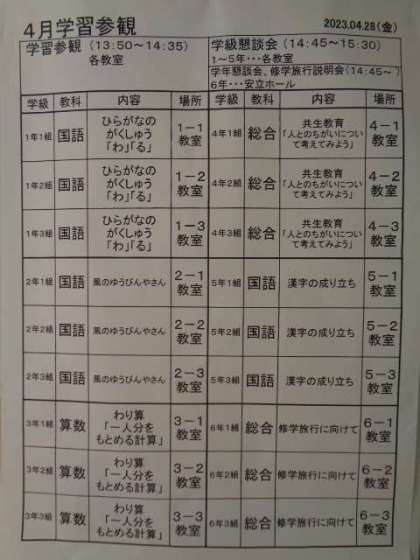 4月学習参観
2023.04.28(金)
学習参観(13:50～14:35)
各教室
学級懇談会(14:45～15:30)
1～5年･･･各教室
学年懇談会、修学旅行説明会(14:45～)
6年･･･安立ホール
学級 教科 内容 場所 学級 教科 内容 場所
1年1組 国語 ひらがなの がくしゅう 「わ」「る」 1－1 教室 4年1組 総合 共生教育 「人とのちがいについ て考えてみよう」 4－1 教室
1年2組 国語 ひらがなの がくしゅう 「わ」「る」 1－2 教室 4年2組 総合 共生教育 「人とのちがいについ て考えてみよう」 4－2 教室
1年3組 国語 ひらがなの がくしゅう 「わ」「る」 1－3 教室 4年3組 総合 共生教育 「人とのちがいについ て考えてみよう」 4－3 教室
2年1組 国語 風のゆうびんやさん 2－1 教室 5年1組 国語 漢字の成り立ち 5－1 教室
2年2組 国語 風のゆうびんやさん 2－2 教室 5年2組 国語 漢字の成り立ち 5－2 教室
2年3組 国語 風のゆうびんやさん 2－3 教室 5年3組 国語 漢字の成り立ち 5－3 教室
3年1組 算数 わり算 「一人分を もとめる計算」 3－1 教室 6年1組 総合 修学旅行に向けて 6－1 教室
3年2組 算数 わり算 「一人分を もとめる計算」 3－2 教室 6年2組 総合 修学旅行に向けて 6－2 教室
3年3組 算数 わり算 「一人分を もとめる計算」 3－3 教室 6年3組 総合 修学旅行に向けて 6－3 教室